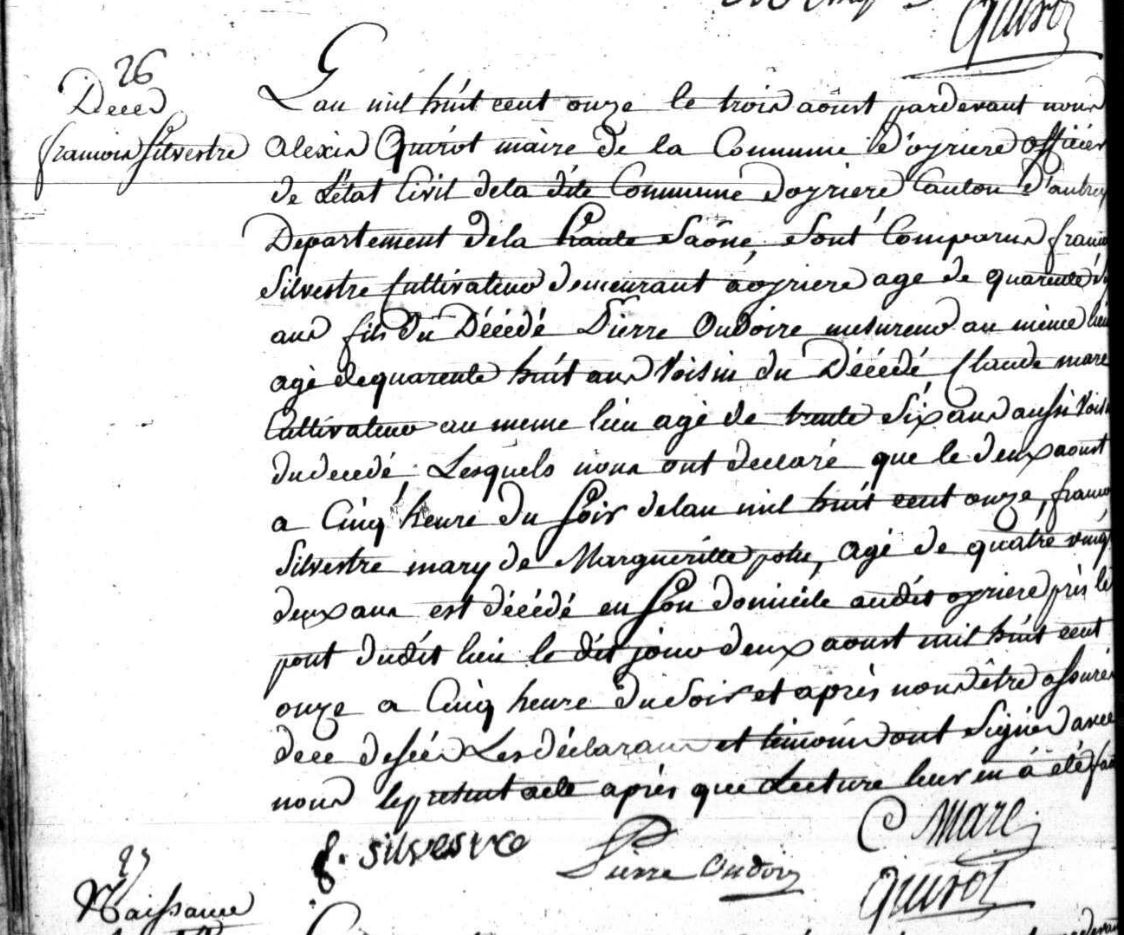 Quirot
26
Decès
francois silvestre
L'an mil huit cent onze le trois aoust pardevant nous
Alexis Quirot maire de la Commune d'oyriere officier
de L'état Civil dela dite Commune doyriere Canton d'autrey
Departement dela haute Saône, sont Comparus francois
Silvestre Cultivateur demeurant à oyriere agé de quarente
ans fils du Décédé Pierre Oudoire mesureur au même lieu
agé dequarente huit ans Voisin du Décédé, Claude marc
Cultivateur au meme lieu agé de trente Six ans aussi Voisin
du decedé. Lesquels nous ont declaré que le deux aoust
a Cinq heure du soir delan mil huit cent onze, francois
Silvestre mary de Margueritte, agé de quatre vingt
deux ans est décédé en son domicile audit oyriere près le
pont dudit lieu le dit jour deux aoust mil huit cent
onze a Cinq heure du soir et après nous être assurés
dece desées Les déclarans et témoins ont signés avec
nous le présent acte après que Lecture leur en à été fait
f. silvestre
Pierre Oudoire
C Marc
Quirot
27
Naissance